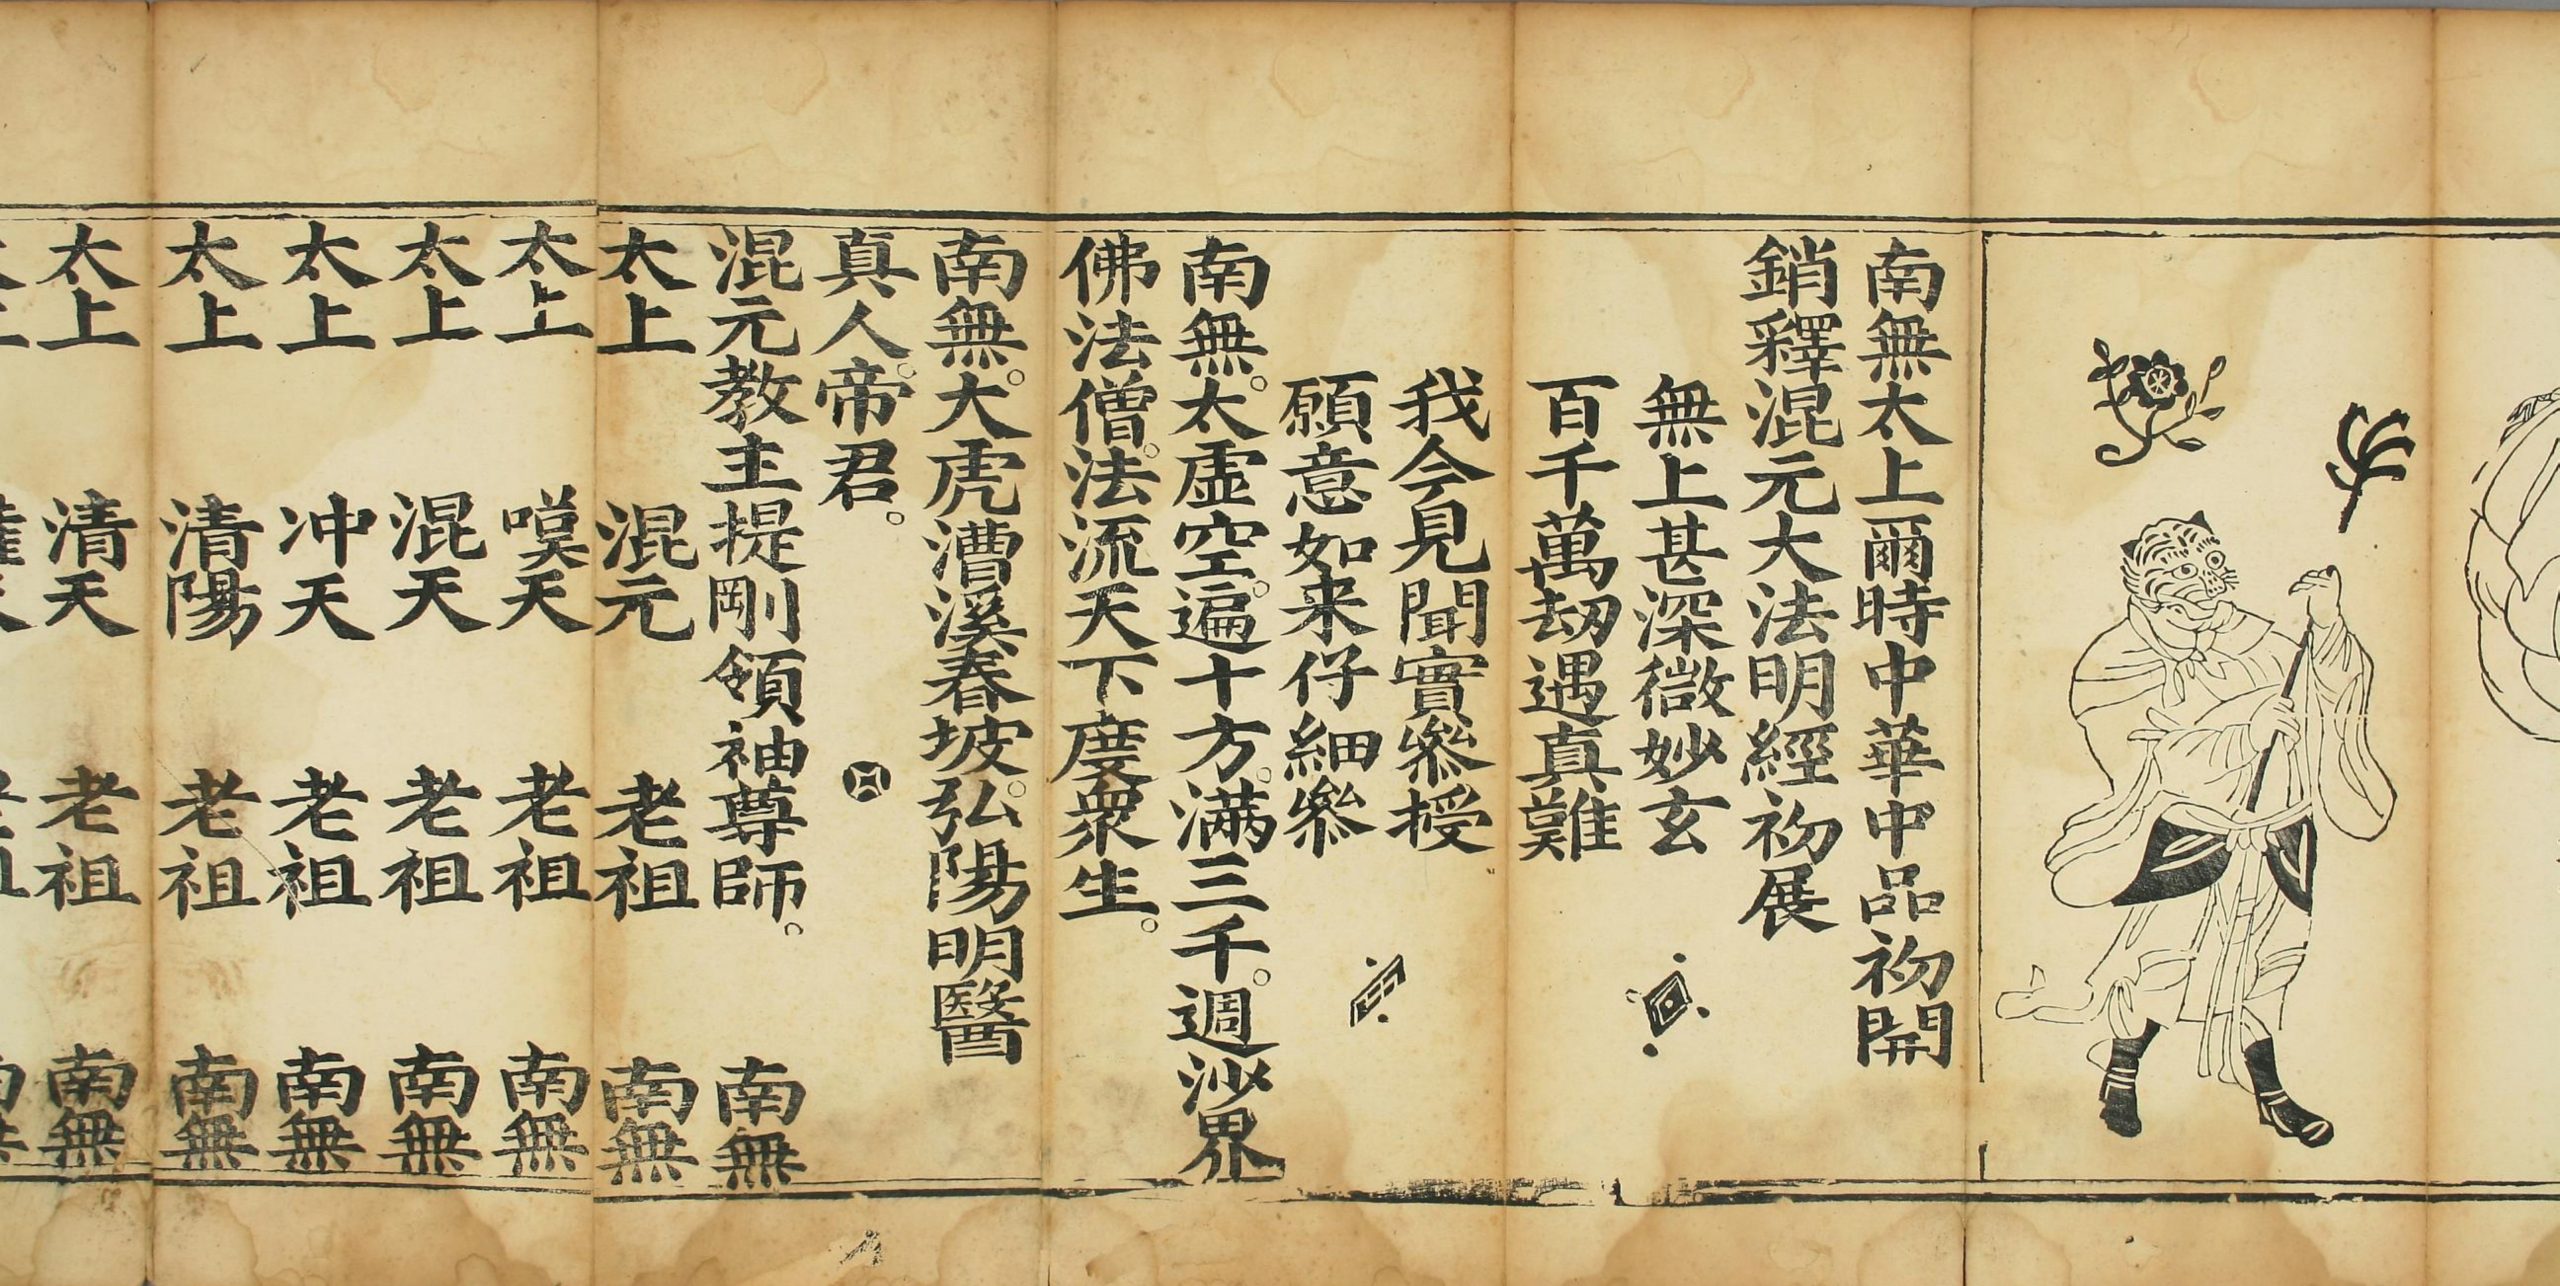 南無太上爾時中華中品初開
銷釋混元大法明經初展
無上甚深微妙玄
百千萬劫遇真難
我今見聞實叅授
願意如来仔細叅
南無。太虛空。遍十方。滿三千。週沙界
佛法僧。法流天下度衆生。
南無。大虎漕溪春坡。弘陽明醫
真人。帝君。
混元教主提剛領袖尊師。 南無
太上 混元 老祖 南無
太上 嘆天 老祖 南無
太上 混天 老祖 南無
太上 冲天 老祖 南無
太上 清陽 老祖 南無
太上 清天 老祖 南無